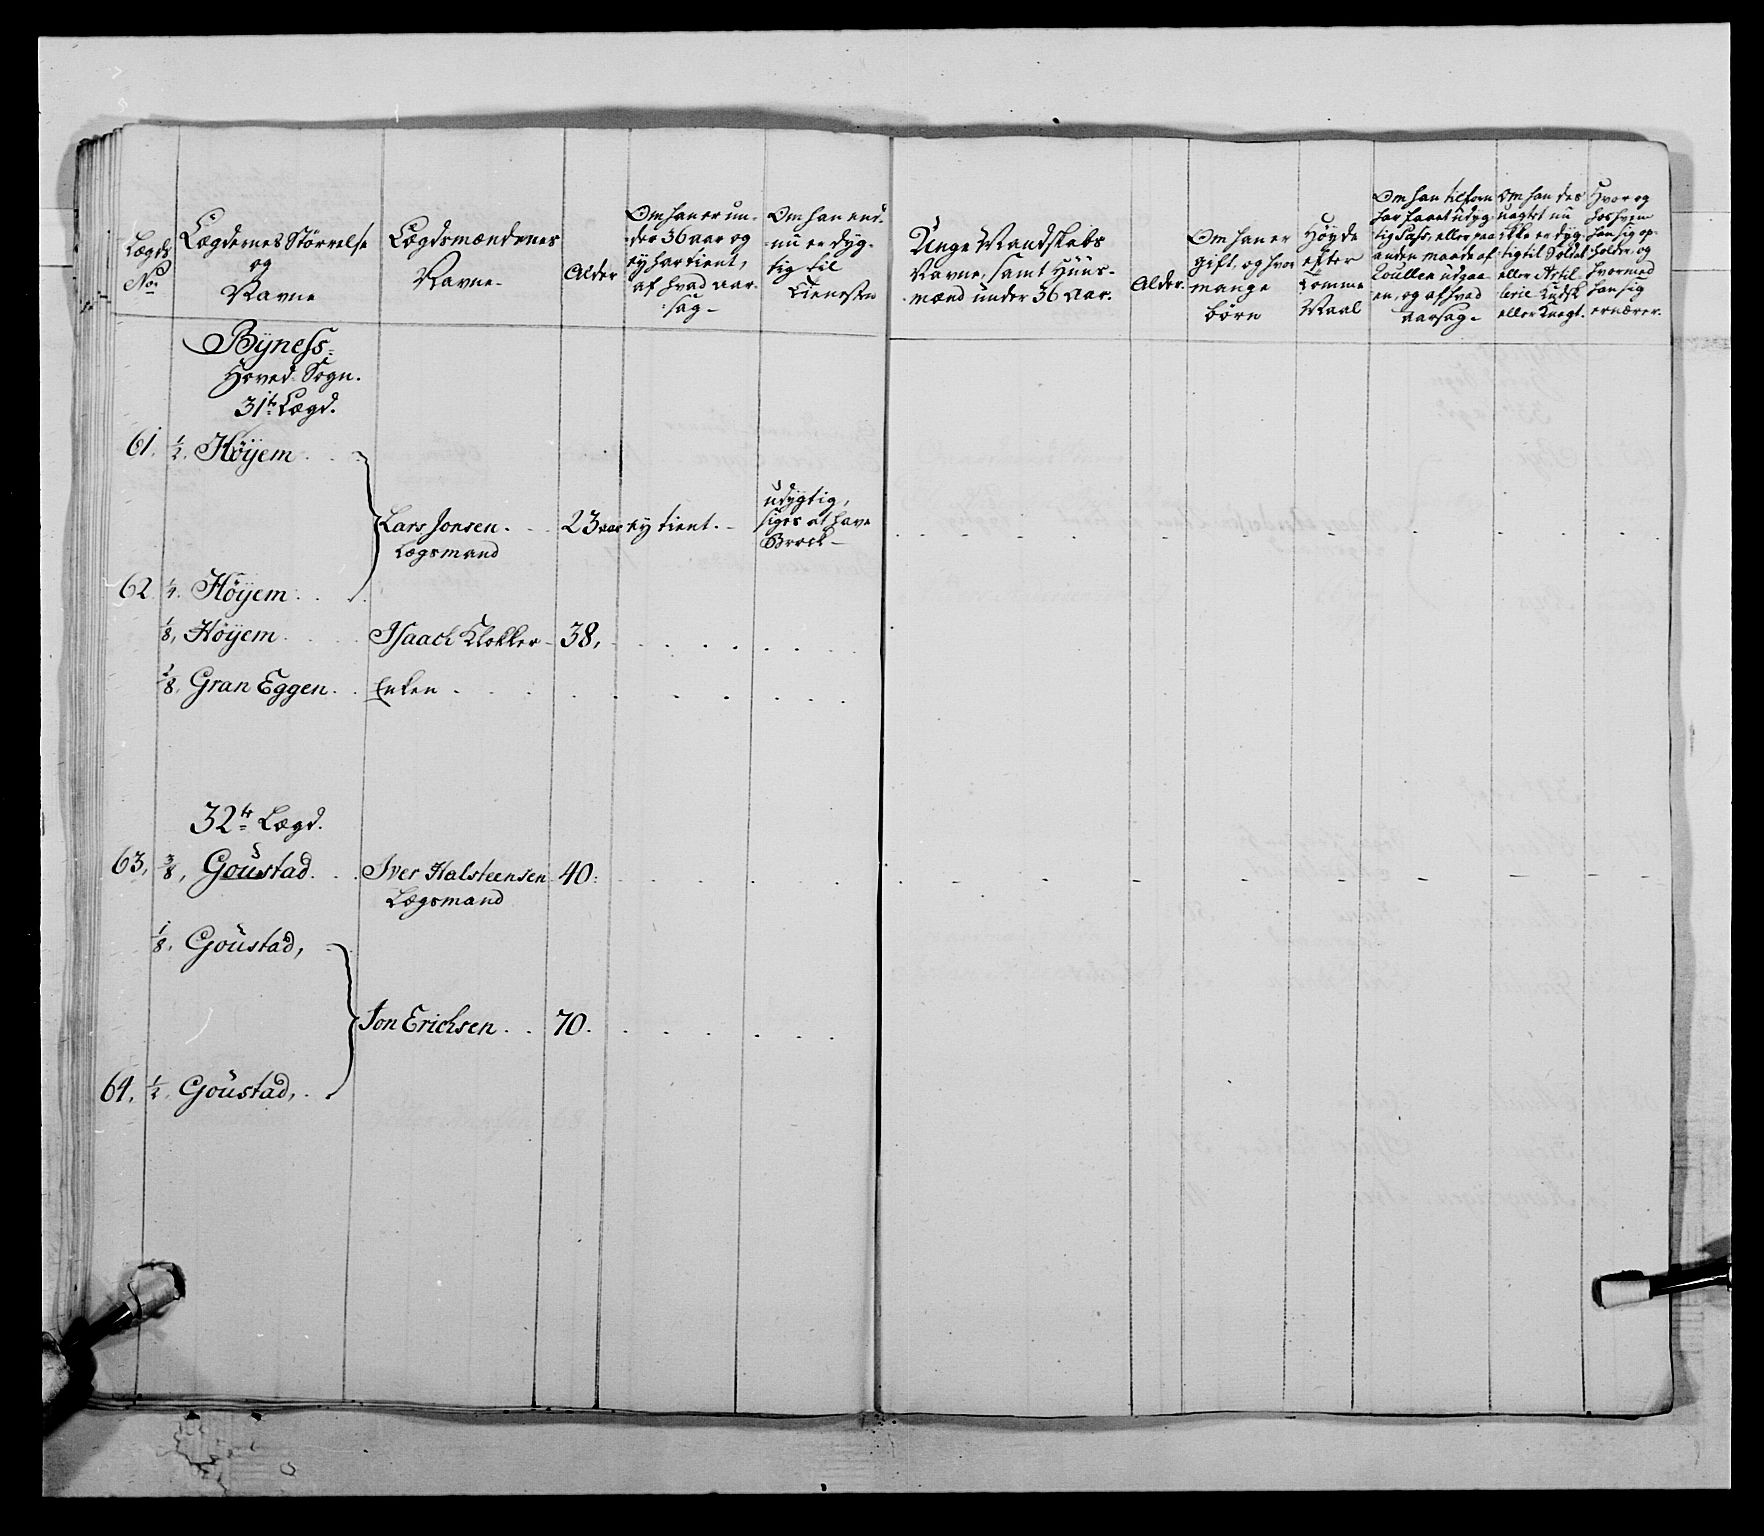 Lægds
No
Lægdernes Størrelse
og
Navne
Lægdsmændenes
Navne
Alder
Om han er un-
der 36 aar og
ey har tient,
af hvad aar-
sag
Om han end-
nu er dyg-
tig til
Tienesten
Unge Mandskabs
Navne, samt Huus-
mænd under 36 Aar.
Alder.
Om han er
gift, og hvor
mange
børn
Høyde
efter
Tomme
Maal
Om han tilforn
har faaet udyg-
tig Pass, eller paa
anden maade af
Roullen udgaa
en, og af hvad
aarsag
Om han des
uagtet nu
ikke er dyg-
tig til Soldat
eller Artil
lerie Kudsk
eller Knegt.
Hvor og
hos hvem
han sig op-
holder, og
hvormed
han sig
ernærer.
Byness
Hoved Sogn.
31te Lægd.
61. 1/2. Höyem
Lars Jonsen. 23 aar ey tient. udygtig,
siges at have
Brock
Lægsmand
62. 1/4. Höyem
1/8. Höyem Isaach Klokker 38.
1/8. Gran Eggen Enken
32te Lægd.
63. 3/8. Goustad Iver Halsteensen 40.
Lægsmand
1/8. Goustad,
Jon Erichsen 70.
64. 1/2. Goustad,